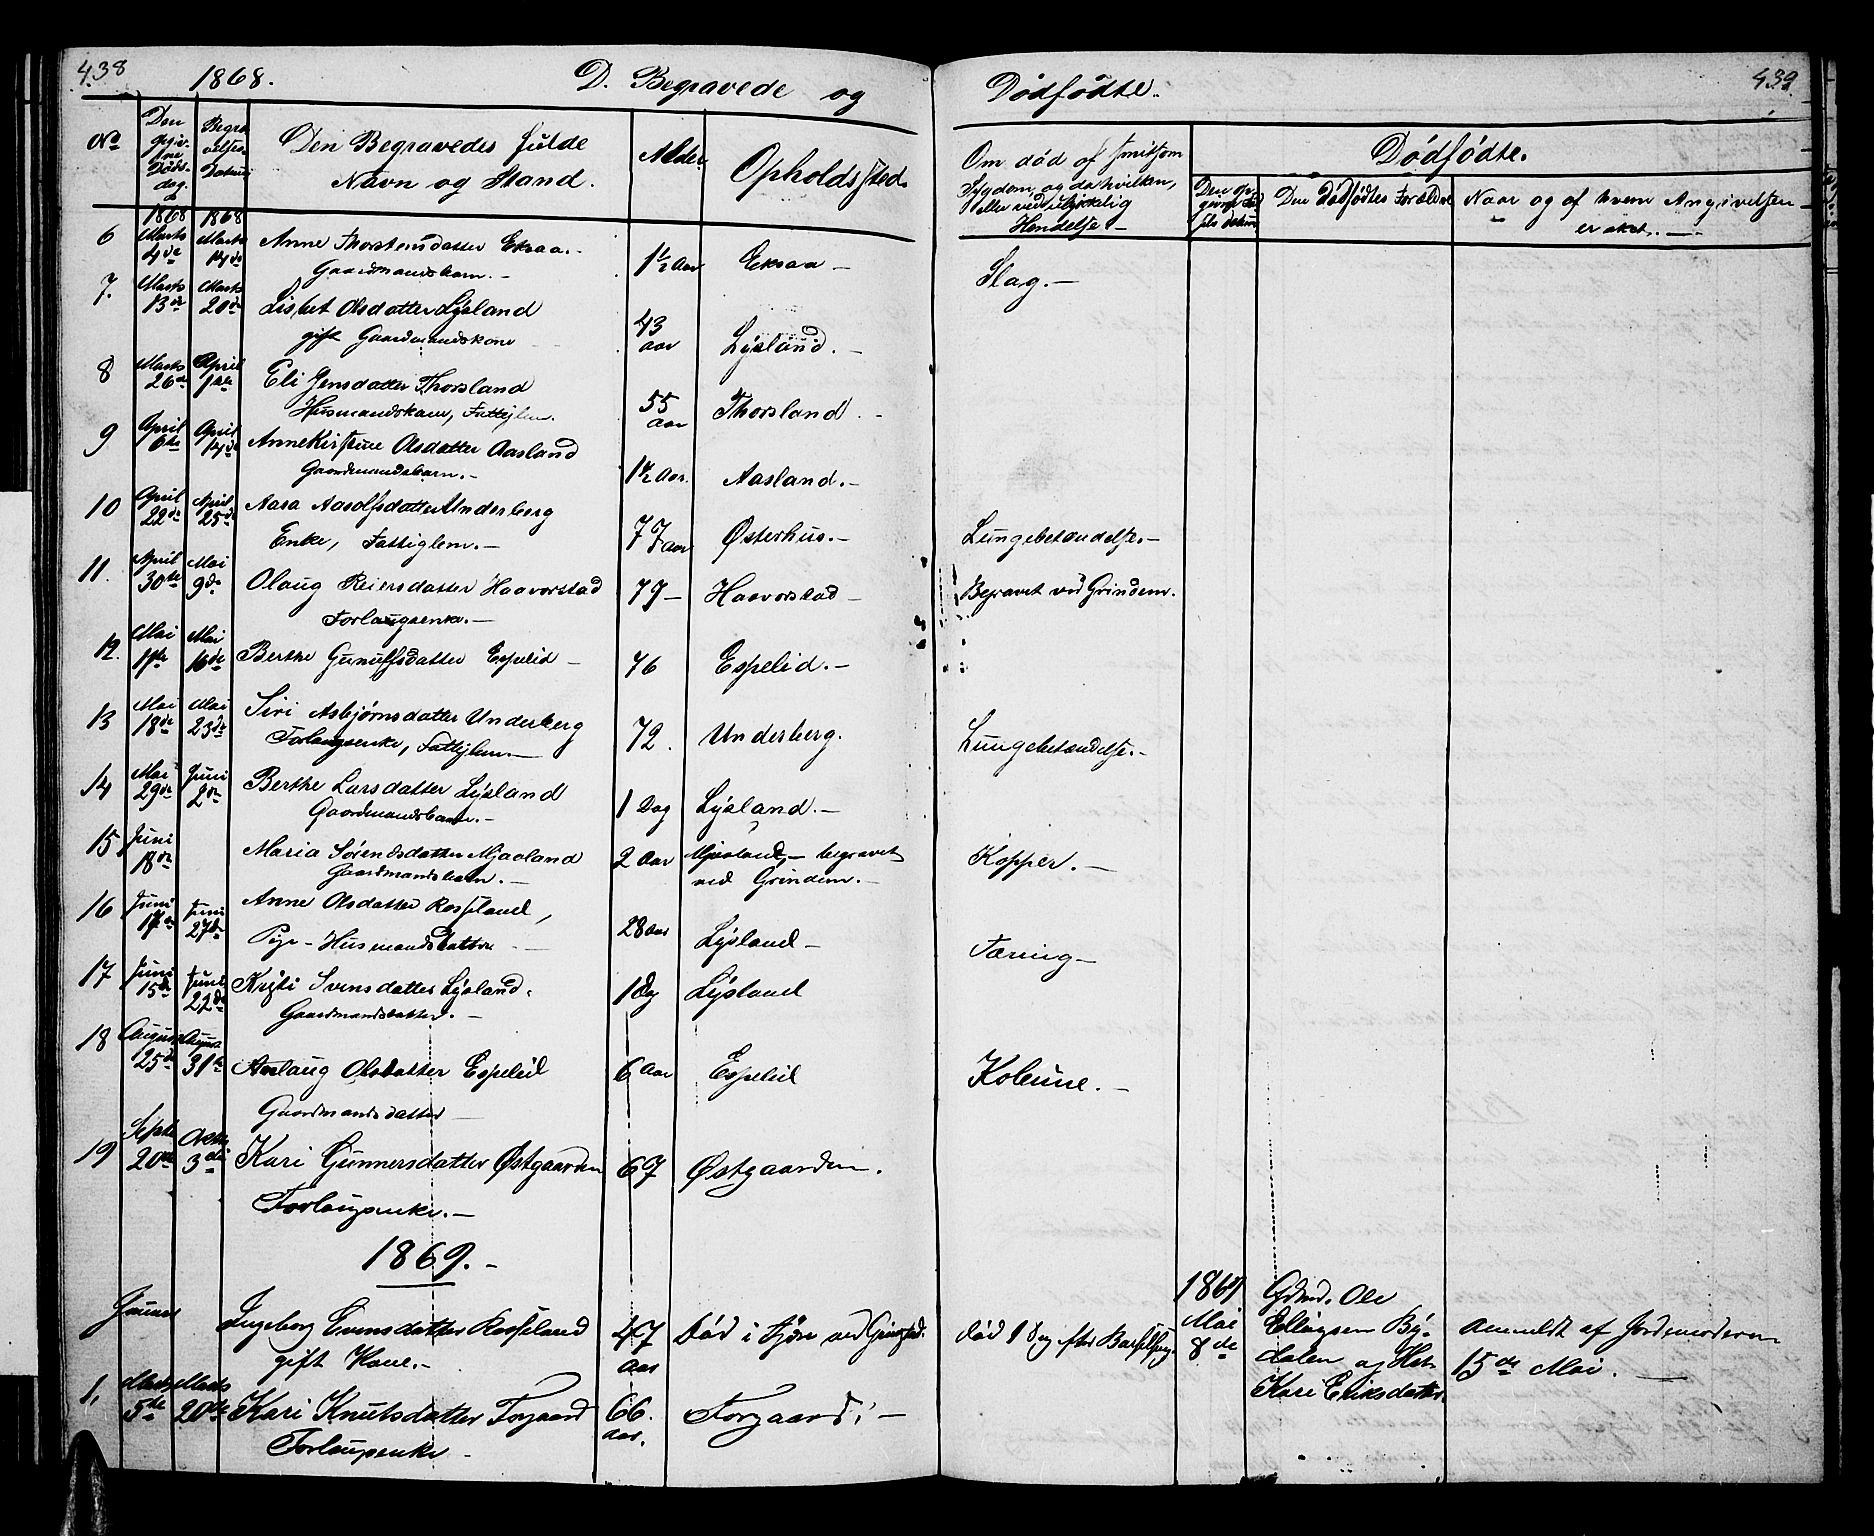 438
1868.
D. Begravede og
Dødfødte.
439.
No
Den
Døds-
dag.
Begra
velses
Datum
Den Begravedes fulde
Navn og Stand.
Alder
Opholdssted.
Om død af smitsom
Sygdom og da hvilken,
eller ved ulykkelig
Hendelse –
Dødfødte.
Den Dødfødtes Forældre
Naar og af hvem Angivelsen
er skeet. –
1868 1868
6 Marts 4de Marts 14de Anne Thorstensdatter Eksaa. – 1½ Aar Eksaa – Slag. –
Gaardmandsbarn. –
7. Marts 13de Marts 20de Lisbet Olsdatter Lysland 43 aar Lysland. –
gift Gaardmandskone
8 Marts 26de April 1ste Eli Jensdatter Thorsland 55 aar Thorsland. –
Husmandskone, Fattiglem.
9 April 6te April 14de Anne Kirstine Olsdatter Aasland 1½ Aar. Aasland. –
Gaardmandsbarn. –
10 April 22de April 25de Aasa Aasolfsdatter Underberg 77 aar Østerhus. – Lungebetændelse. –
Enke, Fattiglem. –
11. April 30te Mai 9de Olaug Reiersdatter Haavorstad 79 – Haavorstad – Begravet ved Grindem.
Forlaugsenke. –
12. Mai 11te Mai 16de Berthe Gunulfsdatter Espelid – 76 Espelid. –
13 Mai 18de Mai 23de Siri Asbjørnsdatter Underberg 72. Underberg. Lungebetændelse. –
Forlaugsenke, Fattiglem. –
14 Mai 29de Juni 2de Berthe Larsdatter Lysland 1 Dag Lysland. –
Gaardmandsbarn. –
15 Juni 18de Maria Sørensdatter Mjaaland 2 Aar Mjaaland, – begravet Kopper. –
Gaardmandsbarn. – ved Grindem. –
16 Juni 17de Juni 27de Anne Olsdatter Rosseland, 28 aar Lysland – Tæring –
Pige – Husmandsdatter
17 Juni 15de Juni 22de Kristi Svensdatter Lysland. 1 Dg Lysland
Gaardmandsdatter. –
18 August 25de August 31te Anlaug Olsdatter Espelid 6 Aar Espelid Kolerine. –
Gaardmandsdatter –
19 Septbr 20de Octbr 3die Kari Gunnersdatter Østgaarden 67 Østgaarden.
Forlaugsenke. –
1869. –
Januar Ingeborg Svensdatter Rosseland 47 aar Død i Fjære ved Grimstad. død 1 Dag efter Barselseng.
gift Kone. –
1869 Mai 8de
Gdmd. Ole
Ellingsen By-
dalen og Hst.
Kari Eriksdatter.
Anmeldt af Jordemoderen
15de Mai. –
1. Marts 5te Marts 20de Kari Knutsdatter Forgaard 66. aar. Forgaard; –
Forlaugsenke –